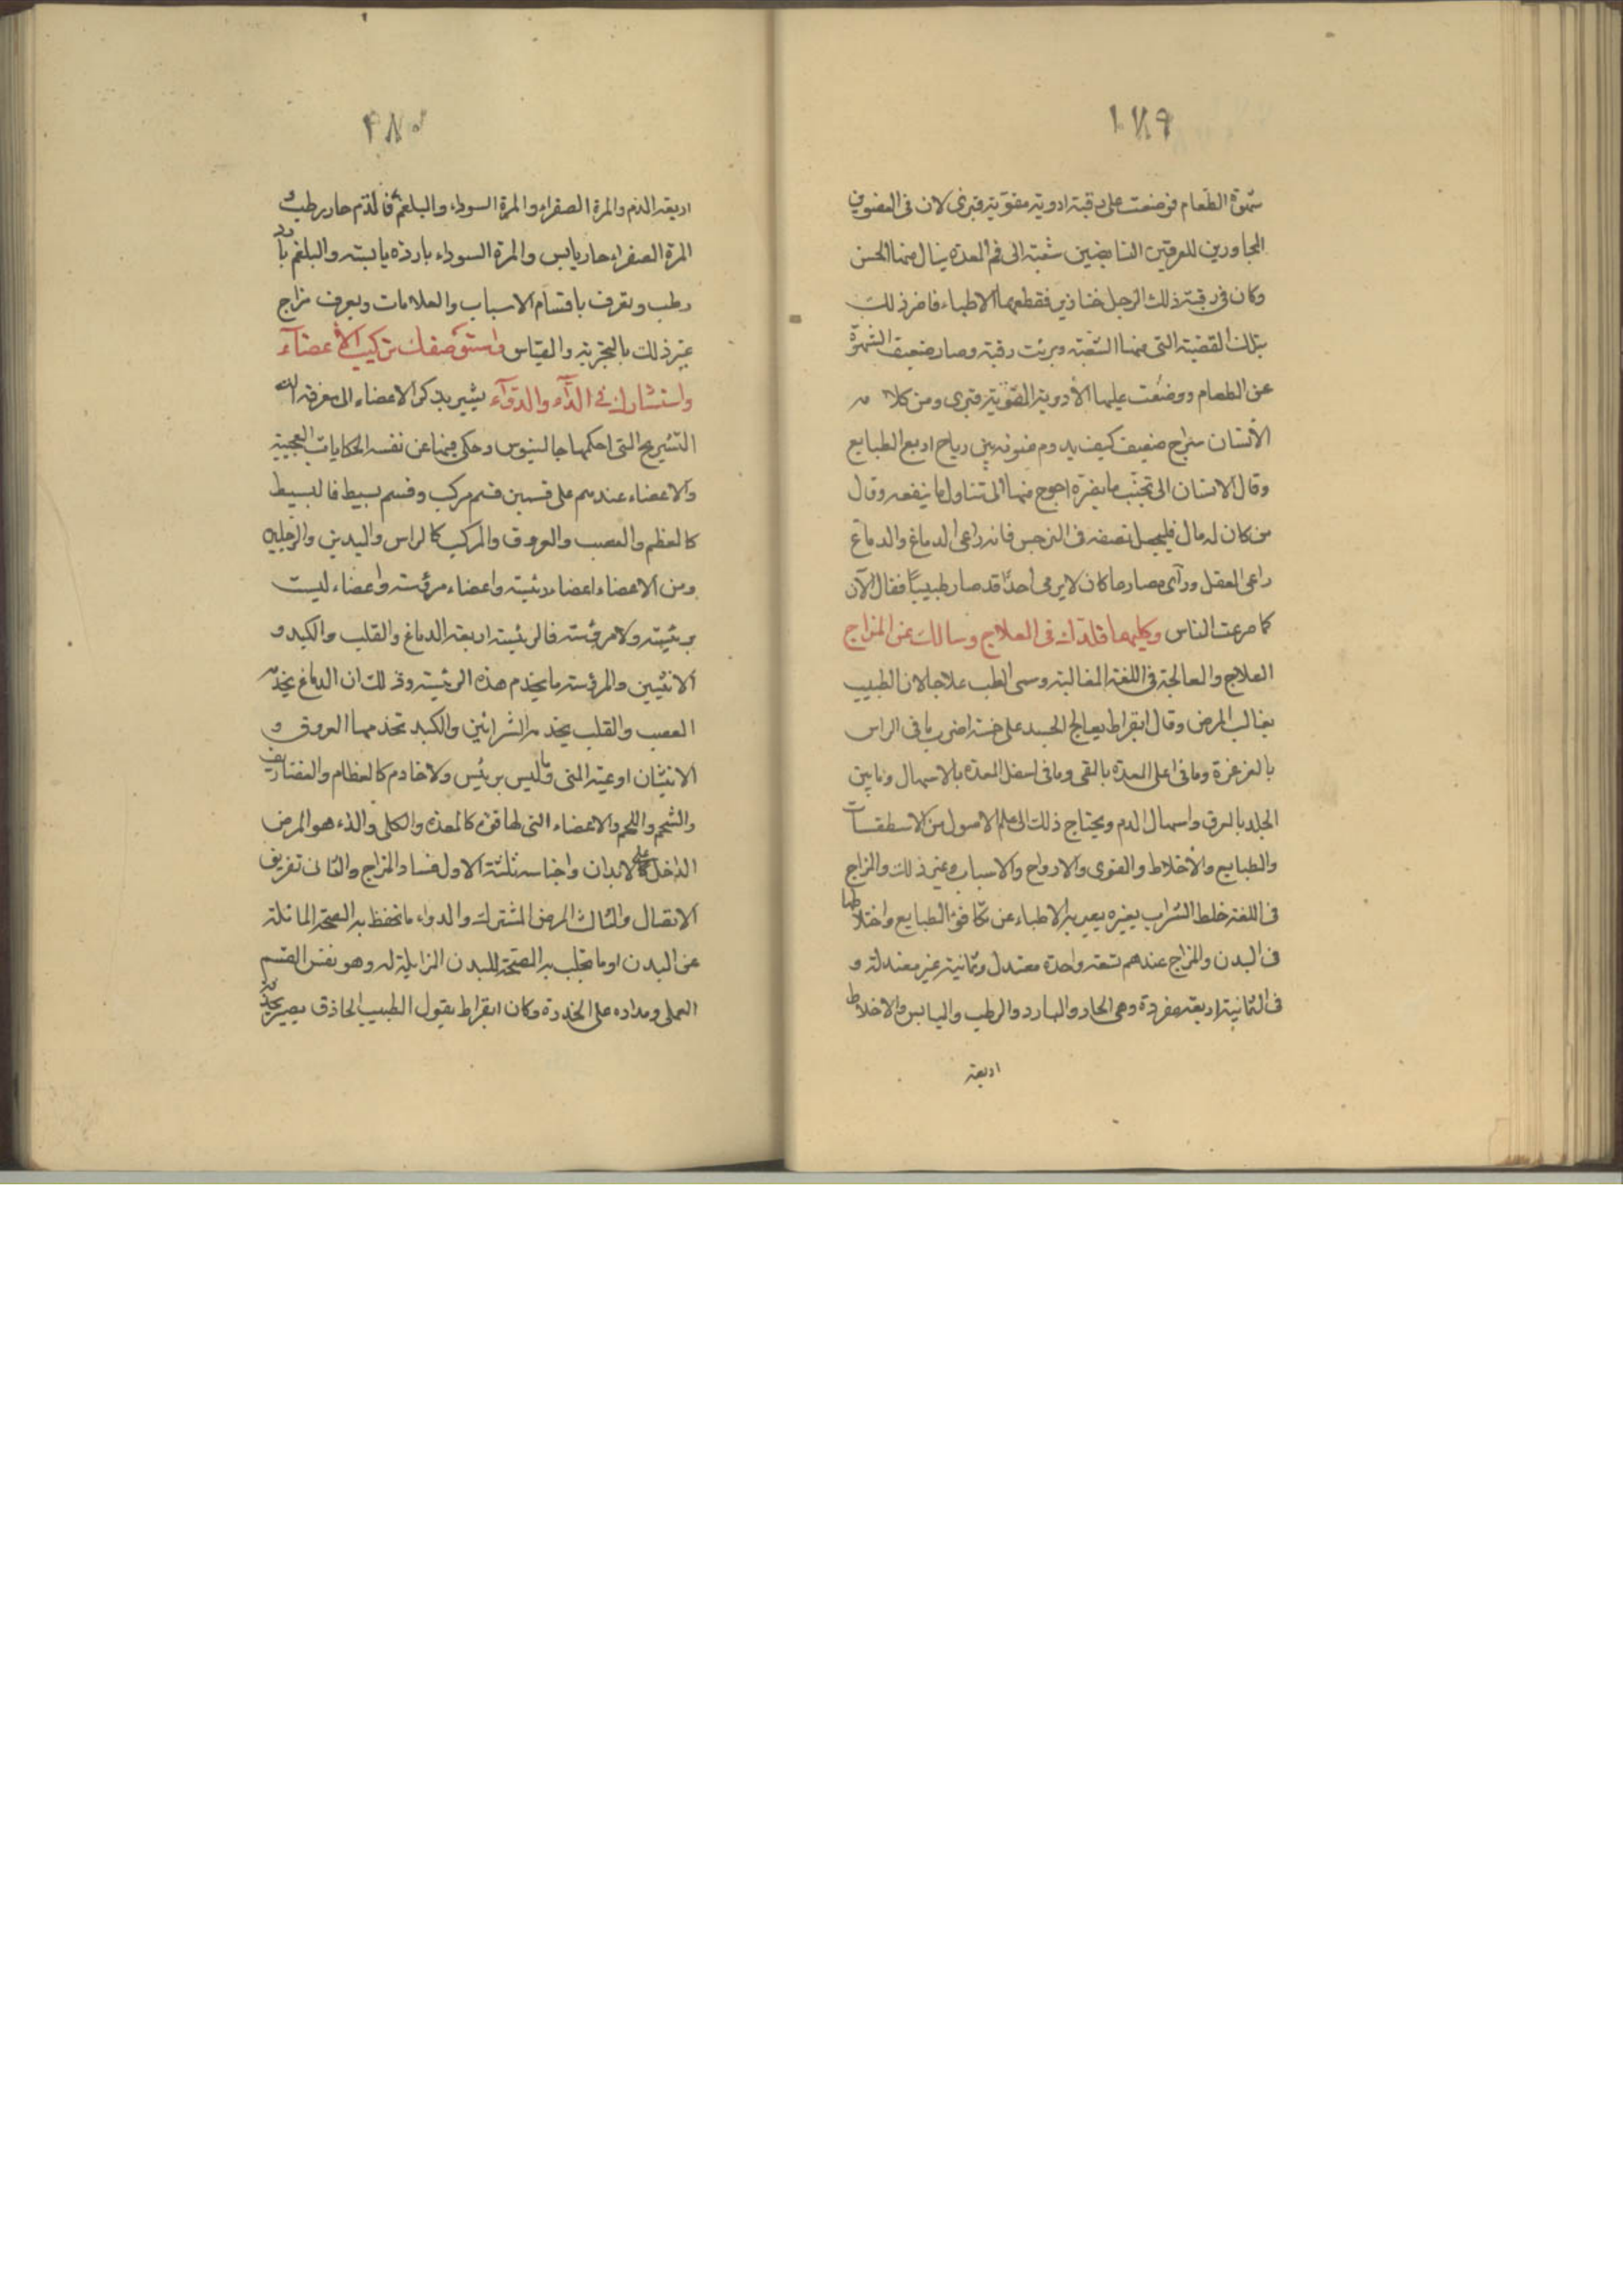 ١٧٩
شهوة الطعام فوضعت على رقبته ادوية مقوية فبرى لان فى العضوين
المجاورين للعرقين النابضين شعبة الى فم المعدة ينال منها الحسن
وكان فى رقبة ذلك الرجل خنازير فقطعها الاطباء فاضر ذلك
بتلك القضية التى منها الشعبة وبرئت رقبته وصار ضعيف الشهوة
عن الطعام ووضعت عليها الأدوية المقوية فبرى ومن كلامه
الأنسان سراج ضعيف كيف يدوم ضوئه بين رياح اربع الطبايع
وقال الانسان الى تجنب ما يضره احوج منه الى تناول ما ينفعه وقال
من كان له مال فليجعل نصفه فى النرجس فانه راعى الدماغ والدماغ
راعى العقل ورآى مصارعا كان لايرمى أحدًا قد صار طبيبًا فقال الآن
كما صرعت الناس وكليهما قلدك فى العلاج وسالك عن المزاج
العلاج والمعالجة فى اللغة المغالبة وسمى الطب علاجا لان الطبيب
يغالب المرض وقال ابقراط يعالج الجسد على خمسة اضرب ما فى الراس
بالغرغرة وما فى اعلى المعدة بالقى وما فى اسفل المعدة بالاسهال وما بين
الجلد بالعرق واسهال الدم ويحتاج ذلك الى علم الاصول من الاسطقسات
والطبايع والأخلاط والقوى والارواح والاسباب وغير ذلك والمزاج
فى اللغة خلط الشراب بغيره يعبر به الاطباء عن تكافؤ الطبايع واختلاطها
فى البدن والمزاج عندهم تسعة واحدة معتدل وثمانية غير معتدلة و
فى الثمانية اربعة مفردة وهى الحار والبارد والرطب واليابس والاخلاط
اربعة
٢٨٠
اربعة الدم والمرة الصفراء والمرة السوداء والبلغم فالدم حار رطب و
المرة الصفراء حار يابس والمرة السوداء باردة يابسة والبلغم بارد
رطب ويعرف باقسام الاسباب والعلامات ويعرف مزاج
غير ذلك بالتجربة والقياس واستوصفك تركيب الأعضآء
واستشارك فى الدآء والدوآء يشير بذكر الاعضاء الى معرفة
التشريح التى احكمها جالينوس وحكى فيها عن نفسه الحكايات العجيبة
والاعضاء عندهم على قسمين قسم مركب وقسم بسيط فالبسيط
كالعظم والعصب والعروق والمركب كالراس واليدين والرجلين
ومن الاعضاء اعضاء رئيسة واعضاء مرؤسة واعضاء ليست
برئيسة ولا مرؤسة فالرئيسة اربعة الدماغ والقلب والكبد و
الانثيين والمرؤسة ما يخدم هذه الرئيسة وذلك ان الدماغ يخدمه
العصب والقلب يخدمه الشرائين والكبد تخدمها العروق و
الانثيان اوعية المنى وما ليس برئيس ولا خادم كالعظام والغضاريف
والشحم واللحم والاعضاء التى لها قوة كالمعدة والكلى والداء هو المرض
الداخل على الابدان واجناسه ثلثة الاول فساد المزاج والثانى تفريق
الاتصال والثالث المرض المشترك والدواء ما تحفظ به الصحة الماثلة
عن البدن او ما تجلب به الصحة للبدن الزايلة له وهو نفس القسم
العملى ومداره على الخدرة وكان ابقراط يقول الطبيب الحاذق يصير